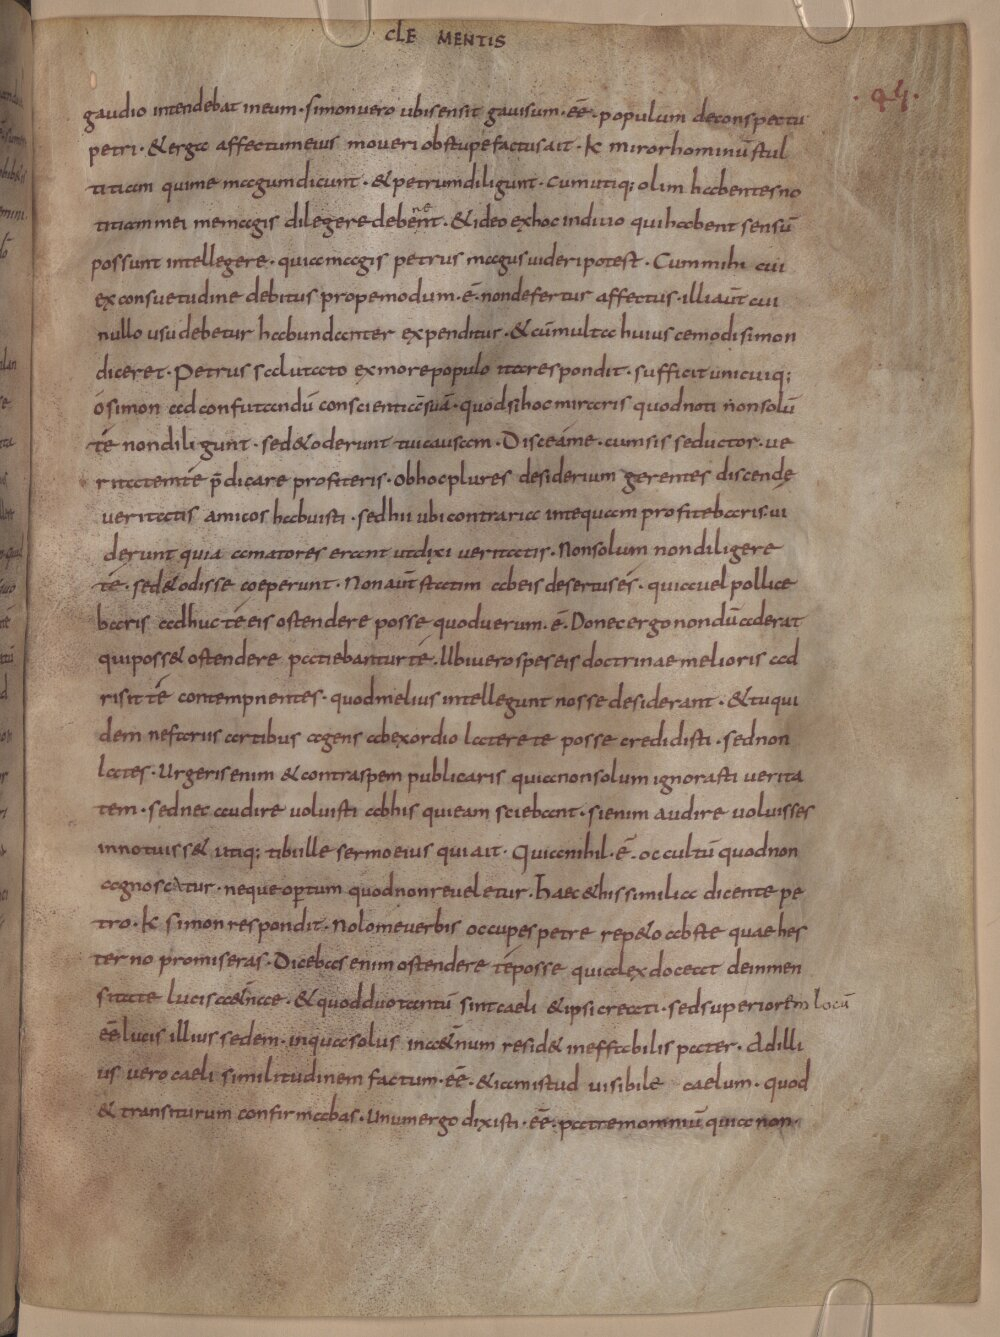 CLEMENTIS
gaudio intendebat in eum · simon uero ubi sensit gauisum · eē · populum deconspectu
petri · & ergo affectum eius moueri obstupefactus ait · K miror hominū stul
titiam qui me magum dicunt · & petrum diligunt · cum utiq; olim habentes no
titiam mei me magis dilegere debent · & ideo ex hoc indicio qui habent sensū
possunt intellegere · quia magis petrus magus uideri potest · Cum mihi cui
ex consuetudine debitus propemodum · ē · non defertur affectus · illi aūt cui
nullo usu debetur habundanter expenditur · & cū multa huiuscemodi simon
diceret · Petrus salutato ex more populo ita respondit · sufficit unicuiq;
ó simon ad confutandū conscientiā suā · quod si hoc miraris quod noti non solū
té non diligunt · sed & oderunt tui causam · Disce á me · cum sis seductor · ue
ritatem té p̄dicare profiteris · ob hoc plures desiderium gerentes discende
ueritatis amicos habuisti · sed hii ubi contraria in te quam profitebaris · ui
derunt quia amatores erant ut dixi ueritatis · Non solum non diligere
té · sed & odisse coeperunt · Non aūt statim ab eis desertus és · quia uel pollice
baris adhuc té eis ostendere posse quod uerum · ē · Donec ergo nondū aderat
qui poss& ostendere patiebantur té · Ubi uero spes eis doctrinae melioris ad
risit té contempnentes · quod melius intellegunt nosse desiderant · & tu qui
dem nefariis artibus agens ab exordio latere te posse credidisti · sed non
lates · Urgeris enim & contra spem publicaris quia non solum ignorasti uerita
tem · sed nec audire uoluisti ab his qui eam sciebant · si enim audire uoluisses
innotuiss& utiq; tibi ille sermo eius qui ait · Quia nihil · ē · occultū quod non
agnoscatur · neque opertum quod non reueletur · Haec & his similia dicente pe
tro · K simon respondit · Nolo me uerbis occupes petre repeto abs te quae hes
terno promiseras · Dicebas enim ostendere té posse quia lex doceat de inmen
sitate lucis aet̄nae · & quod duo tantū sint caeli & ipsi creati · sed superiorem locū
eē lucis illius sedem · in qua solus in aet̄num resid& ineffabilis pater · Ad illi
us uero caeli similitudinem factum · eē · & iam istud uisibile caelum · quod
& transiturum confirmabas · unum ergo dixisti · eē · patrem omniū quia non ·